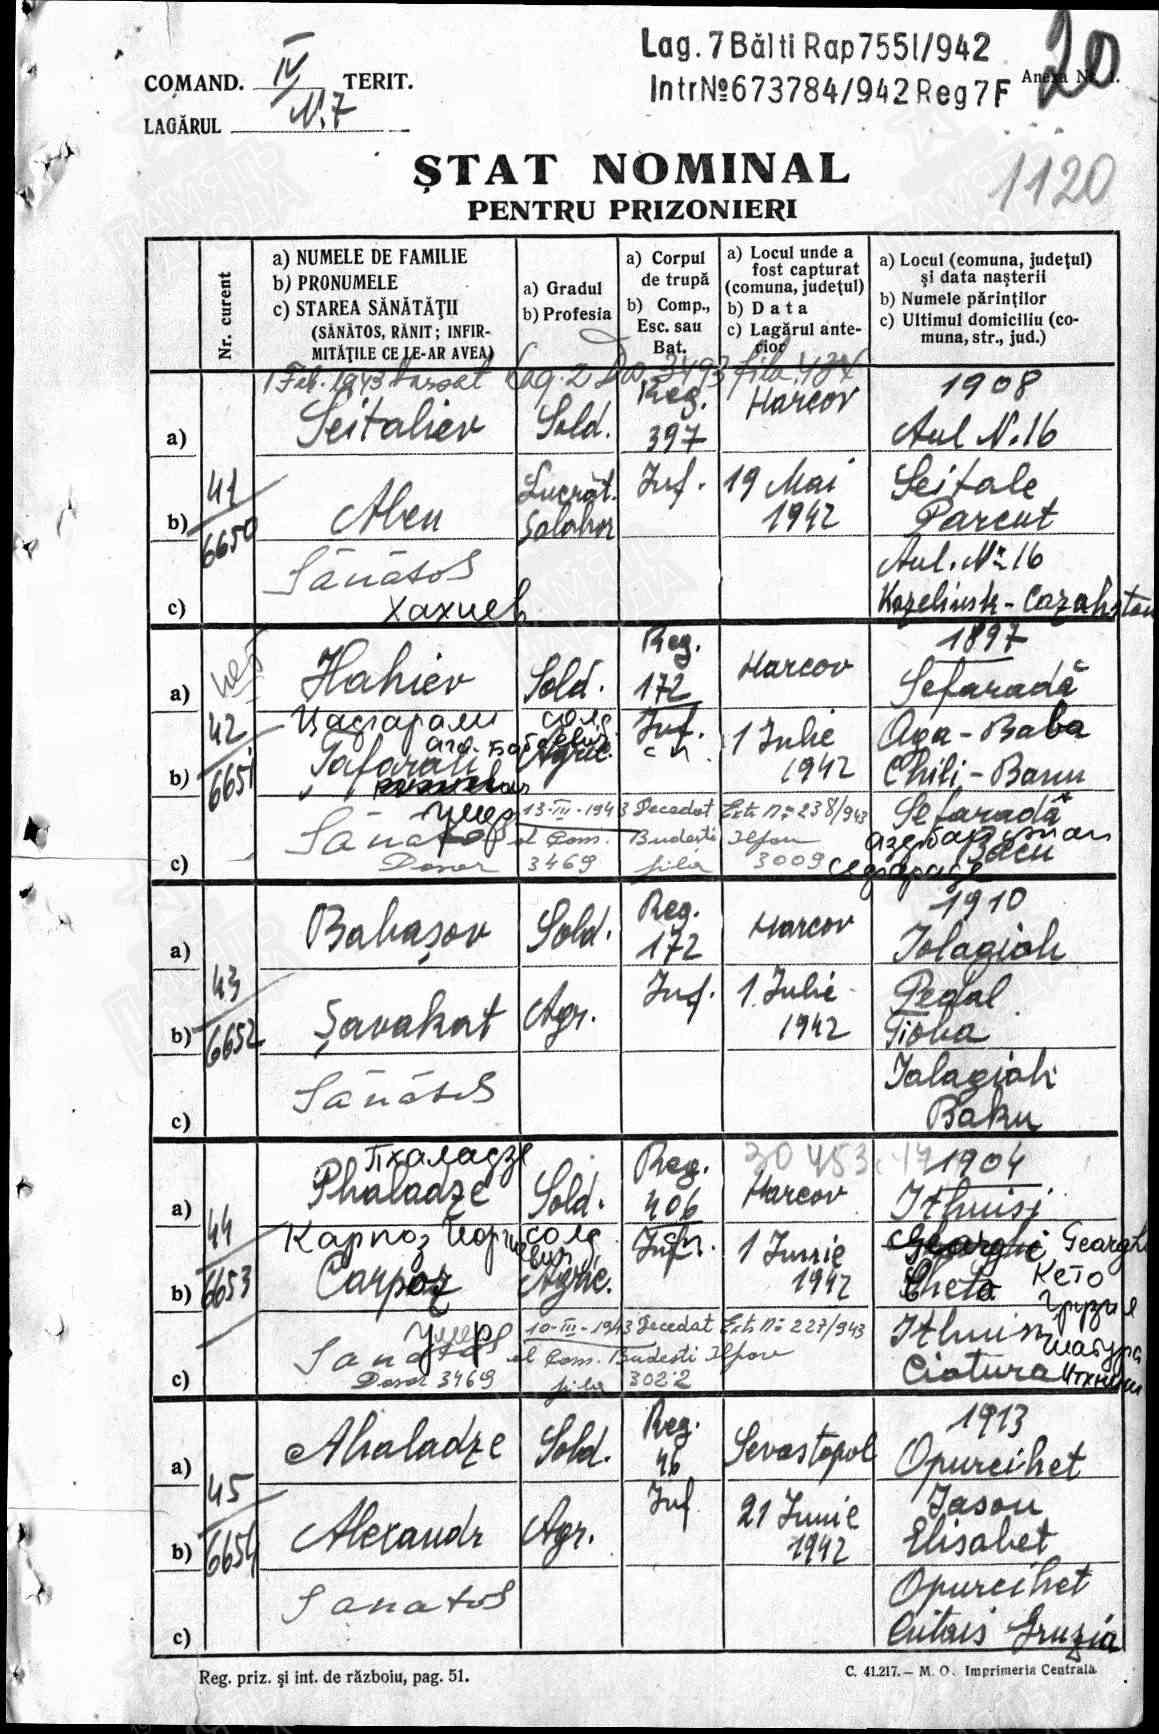 Lag. 7 Bălti Rap 7551/942
Intr № 673784/942 Reg 7 F
Anexa Nr. 1.
20
COMAND. IV TERIT.
LAGĂRUL N. 7
ȘTAT NOMINAL
1120
PENTRU PRIZONIERI
Nr. curent
a) NUMELE DE FAMILIE
b) PRONUMELE
c) STAREA SĂNĂTĂȚII
(SĂNĂTOS, RĂNIT; INFIR-
MITĂȚILE CE LE-AR AVEA)
a) Gradul
b) Profesia
a) Corpul
de trupă
b) Comp.,
Esc. sau
Bat.
a) Locul unde a
fost capturat
(comuna, județul)
b) Data
c) Lagărul ante-
rior
a) Locul (comuna, județul)
și data nașterii
b) Numele părinților
c) Ultimul domiciliu (co-
muna, str., jud.)
1 Feb. 1943 Lag. 2
a)
Seitaliev
Sold.
Reg.
397
Harcov
1908
Aul N. 16
41
6650
b)
Aben
Lucrăt.
Inf.
19 Mai
1942
Seitale
Parcut
c)
Sănătos
Хахиев
Aul. № 16
Kazelinsk - Cazahstan
a)
Hahiev
Sold.
Reg.
172
Harcov
1897
Sefaradă
42
6651
b)
солд
Agric.
Inf.
сп.
1 Iulie
1942
Aga - Baba
Chili - Banu
c)
Sănătos
умер
13-III-1943 Decedat Extr. № 238/943
al Com. Budești Ilfov
Dosar 3469 fila 3009
Sefaradă
азербайджан
Bacu
a)
Babașov
Sold.
Reg.
172
Harcov
1910
Iolagiah
43
6652
b)
Șavakat
Agr.
Inf.
1 Iulie
1942
c)
Sănătos
Ialagiah
Baku
Пхаладзе
a)
Phaladze
Sold.
Reg.
406
Harcov
1904
44
6653
Карпоз Георгиевич
солд
b)
Carpoz
Agric.
Inf.
сп.
1 Iunie
1942
Gheorghe
Cheta
Кето
Грузия
c)
Sanatos
умер
10-III-1943 Decedat Extr. № 227/943
al Com. Budesti Ilfov
Dosar 3469 fila 3022
Ciatura
a)
Ahaladze
Sold.
Reg.
46
Sevastopol
1913
Opurcihet
45
6654
b)
Alexandr
Agr.
Inf
21 Iunie
1942
Iason
Elisabet
c)
Sanatos
Opurcihet
Cutais Gruzia
Reg. priz. și int. de războiu, pag. 51.
C. 41.217. – M. O. Imprimeria Centrală